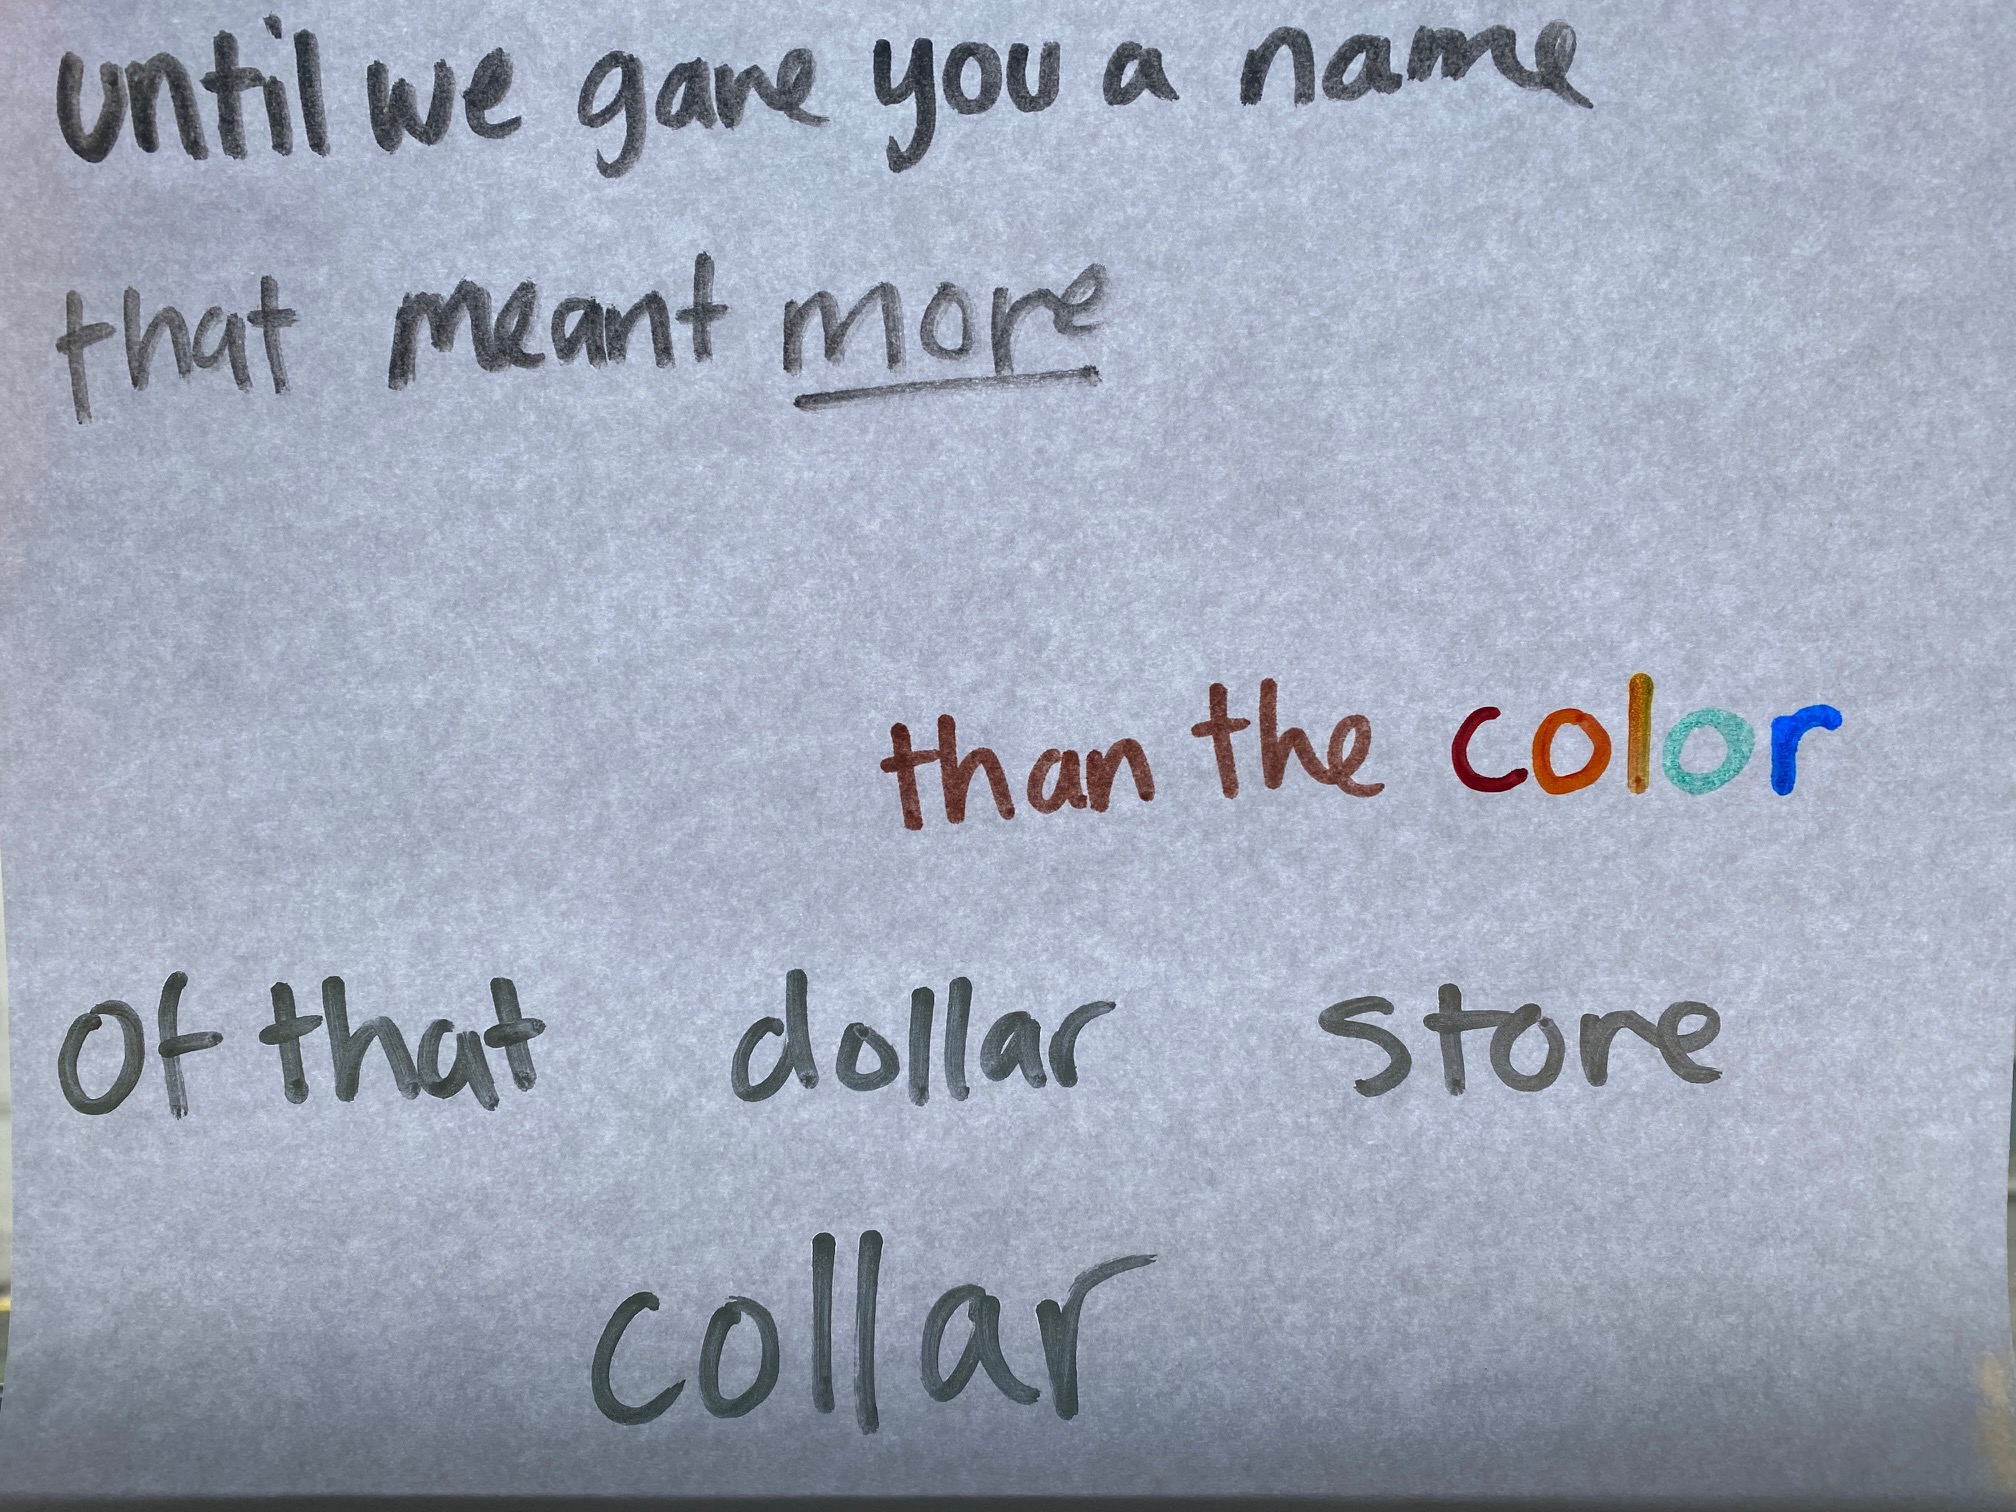 until we gave you a name
that meant more
than the color
of that dollar store
collar